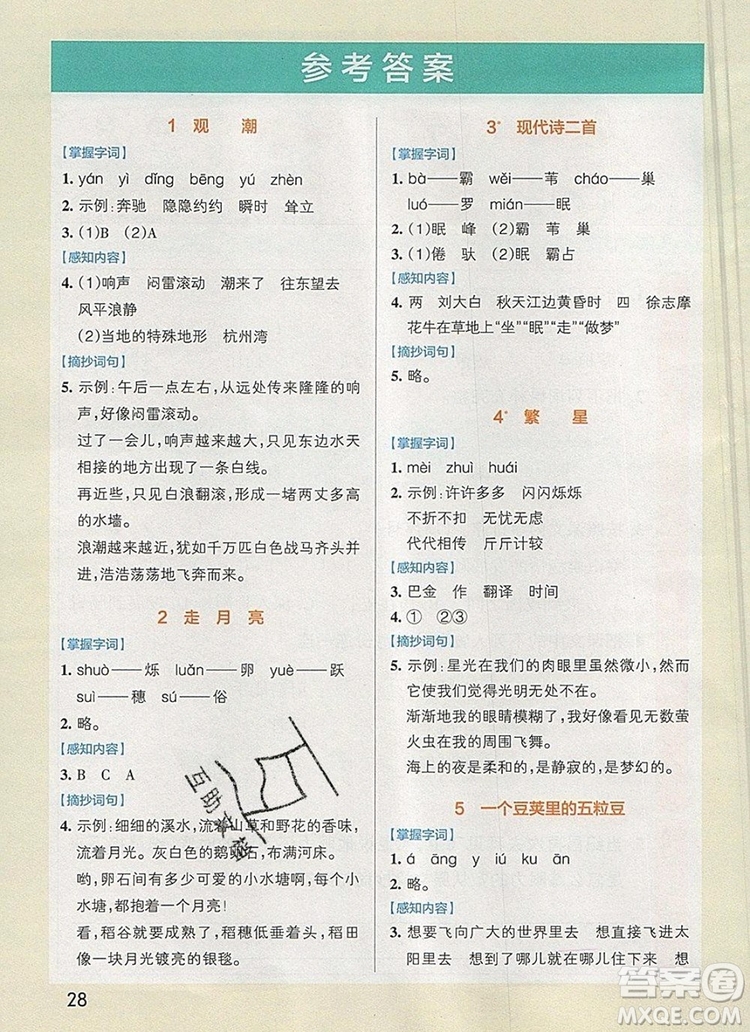 参考答案
1 观 潮
【掌握字词】
1. yán yì dǐng bēng yú zhèn
2. 示例：奔驰 隐隐约约 瞬时 耸立
3. (1)B (2)A
【感知内容】
4. (1)响声 闷雷滚动 潮来了 往东望去
风平浪静
(2)当地的特殊地形 杭州湾
【摘抄词句】
5. 示例：午后一点左右，从远处传来隆隆的响
声，好像闷雷滚动。
过了一会儿，响声越来越大，只见东边水天
相接的地方出现了一条白线。
再近些，只见白浪翻滚，形成一堵两丈多高
的水墙。
浪潮越来越近，犹如千万匹白色战马齐头并
进，浩浩荡荡地飞奔而来。
2 走 月 亮
【掌握字词】
1. shuò——烁 luǎn——卵 yuè——跃
suì——穗 sú——俗
2. 略。
【感知内容】
3. B C A
【摘抄词句】
4. 示例：细细的溪水，流着山草和野花的香味，
流着月光。灰白色的鹅卵石，布满河床。
哟，卵石间有多少可爱的小水塘啊，每个小
水塘，都抱着一个月亮！
看，稻谷就要成熟了，稻穗低垂着头，稻田
像一块月光镀亮的银毯。
3* 现代诗二首
【掌握字词】
1. bà——霸 wěi——苇 cháo——巢
luó——罗 mián——眠
2. (1)眠 峰 (2)霸 苇 巢
3. (1)倦 驮 (2)眠 霸占
【感知内容】
4. 两 刘大白 秋天江边黄昏时 四 徐志摩
花牛在草地上“坐”“眠”“走”“做梦”
【摘抄词句】
5. 略。
4* 繁 星
【掌握字词】
1. mèi zhuì huái
2. 示例：许许多多 闪闪烁烁
不折不扣 无忧无虑
代代相传 斤斤计较
【感知内容】
3. 巴金 作 翻译 时间
4. ① ②③
【摘抄词句】
5. 示例：星光在我们的肉眼里虽然微小，然
而它使我们觉得光明无处不在。
渐渐地我的眼睛模糊了，我好像看见无数萤
火虫在我的周围飞舞。
海上的夜是柔和的，是静寂的，是梦幻的。
5 一个豆荚里的五粒豆
【掌握字词】
1. á āng y iú ku ān
2. 略。
【感知内容】
3. 想要飞向广大的世界里去 想直接飞进太
阳里去 想到了哪儿就在哪儿住下来 想
28
互助教橙
答案圈
MXQE.COM